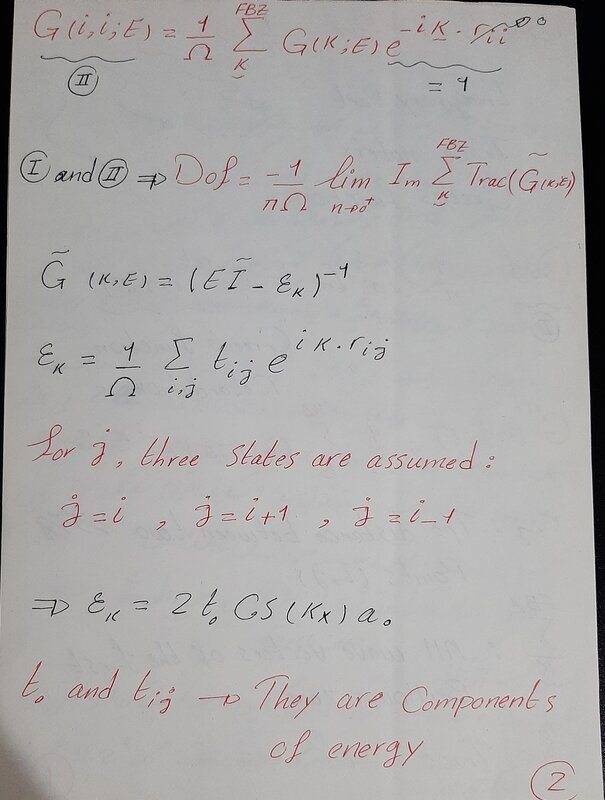 G(i,i;E) = 1/Ω Σ_K^FBZ G(K;E) e^{-iK·r_ii} 0
II
= 1
I and II ⇒ Dof = -1/πΩ lim_{n→0⁺} Im Σ_K^FBZ Trac(G̃(K;E))
G̃ (K,E) = (EĨ - ε_K)^{-1}
ε_K = 1/Ω Σ_{i,j} t_ij e^{iK·r_ij}
for j, three states are assumed:
j = i , j = i+1 , j = i-1
⇒ ε_K = 2t₀ Cos(Kx) a₀
t₀ and t_ij → They are Components
of energy
2